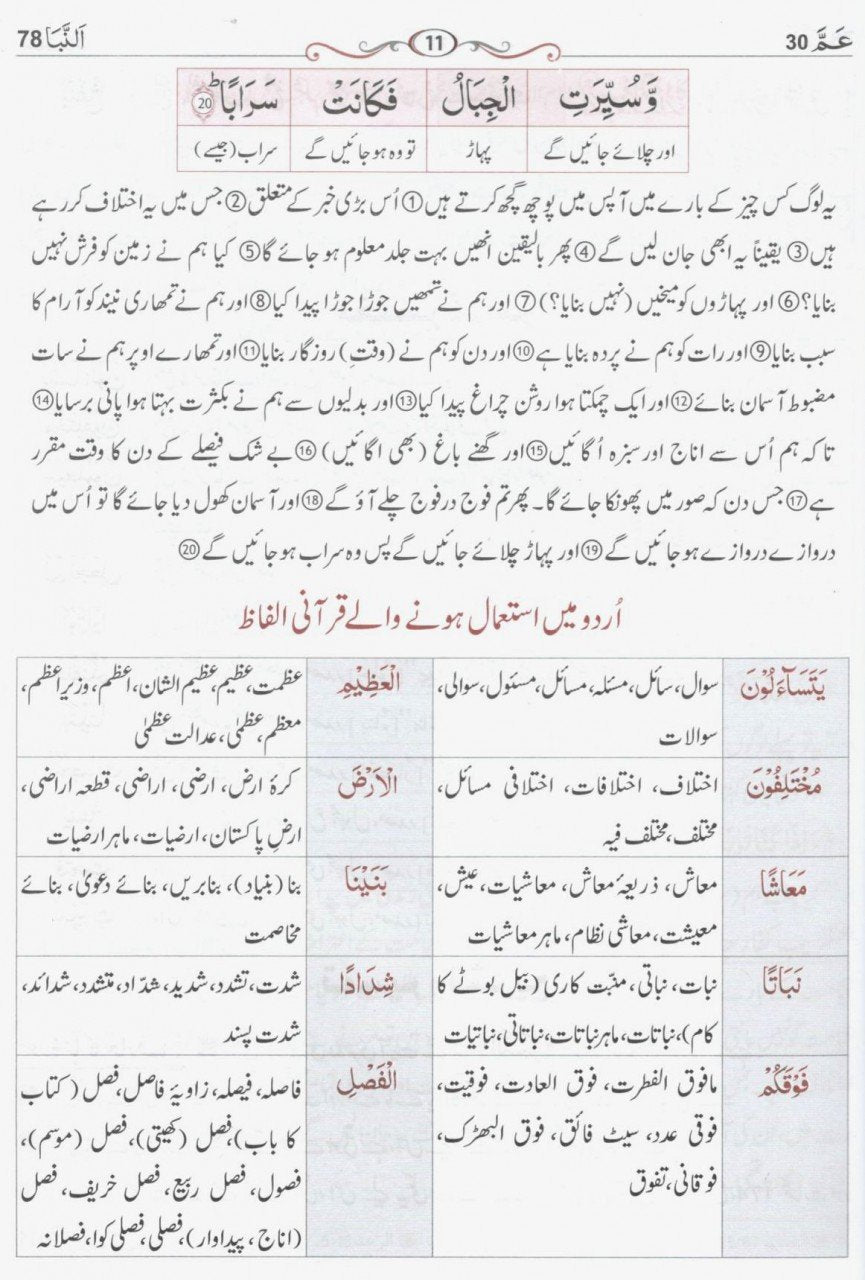 عَمَّ 30
11
اَلنَّبَا 78
وَّسُيِّرَتِ الْجِبَالُ فَكَانَتْ سَرَابًا ؕ 20
اور چلائے جائیں گے پہاڑ تو وہ ہو جائیں گے سراب (جیسے)
یہ لوگ کس چیز کے بارے میں آپس میں پوچھ گچھ کرتے ہیں ① اُس بڑی خبر کے متعلق ② جس میں یہ اختلاف کر رہے
ہیں ③ یقیناً یہ ابھی جان لیں گے ④ پھر بالیقین انھیں بہت جلد معلوم ہو جائے گا ⑤ کیا ہم نے زمین کو فرش نہیں
بنایا؟ ⑥ اور پہاڑوں کو میخیں (نہیں بنایا؟) ⑦ اور ہم نے تمھیں جوڑا جوڑا پیدا کیا ⑧ اور ہم نے تمھاری نیند کو آرام کا
سبب بنایا ⑨ اور رات کو ہم نے پردہ بنایا ہے ⑩ اور دن کو ہم نے (وقتِ) روزگار بنایا ⑪ اور تمھارے اوپر ہم نے سات
مضبوط آسمان بنائے ⑫ اور ایک چمکتا ہوا روشن چراغ پیدا کیا ⑬ اور بدلیوں سے ہم نے بکثرت بہتا ہوا پانی برسایا ⑭
تاکہ ہم اُس سے اناج اور سبزہ اُگائیں ⑮ اور گھنے باغ (بھی اگائیں) ⑯ بے شک فیصلے کے دن کا وقت مقرر
ہے ⑰ جس دن کہ صور میں پھونکا جائے گا۔ پھر تم فوج در فوج چلے آؤ گے ⑱ اور آسمان کھول دیا جائے گا تو اُس میں
دروازے دروازے ہو جائیں گے ⑲ اور پہاڑ چلائے جائیں گے پس وہ سراب ہو جائیں گے ⑳
اُردو میں استعمال ہونے والے قرآنی الفاظ
يَتَسَآءَلُوْنَ سوال، سائل، مسئلہ، مسائل، مسئول، سوالی، الْعَظِيْمِ عظمت، عظیم، عظیم الشان، اعظم، وزیرِ اعظم،
سوالات معظم، عظمیٰ، عدالت عظمیٰ
مُخْتَلِفُوْنَ اختلاف، اختلافات، اختلافی مسائل، الْاَرْضَ کرۂ ارض، ارضی، اراضی، قطعہ اراضی،
مختلف، مختلف فیہ ارضِ پاکستان، ارضیات، ماہر ارضیات
مَعَاشًا معاش، ذریعۂ معاش، معاشیات، عیش، بَنَيْنَا بنا (بنیاد)، بنا بریں، بنائے دعویٰ، بنائے
معیشت، معاشی نظام، ماہر معاشیات مخاصمت
نَبَاتًا نبات، نباتی، منبّت کاری (بیل بوٹے کا شِدَادًا شدت، تشدد، شدید، شدّاد، متشدد، شدائد،
کام)، نباتات، ماہر نباتات، نباتاتی، نباتیات شدت پسند
فَوْقَكُمْ مافوق الفطرت، فوق العادت، فوقیت، الْفَصْلِ فاصلہ، فیصلہ، زاویۂ فاصل، فصل (کتاب
فوقی عدد، سیٹ فائق، فوق البھڑک، کا باب)، فصل (کھیتی)، فصل (موسم)،
فوقانی، تفوق فصول، فصل ربیع، فصل خریف، فصل
(اناج، پیداوار)، فصلی، فصلی کوا، فصلانہ